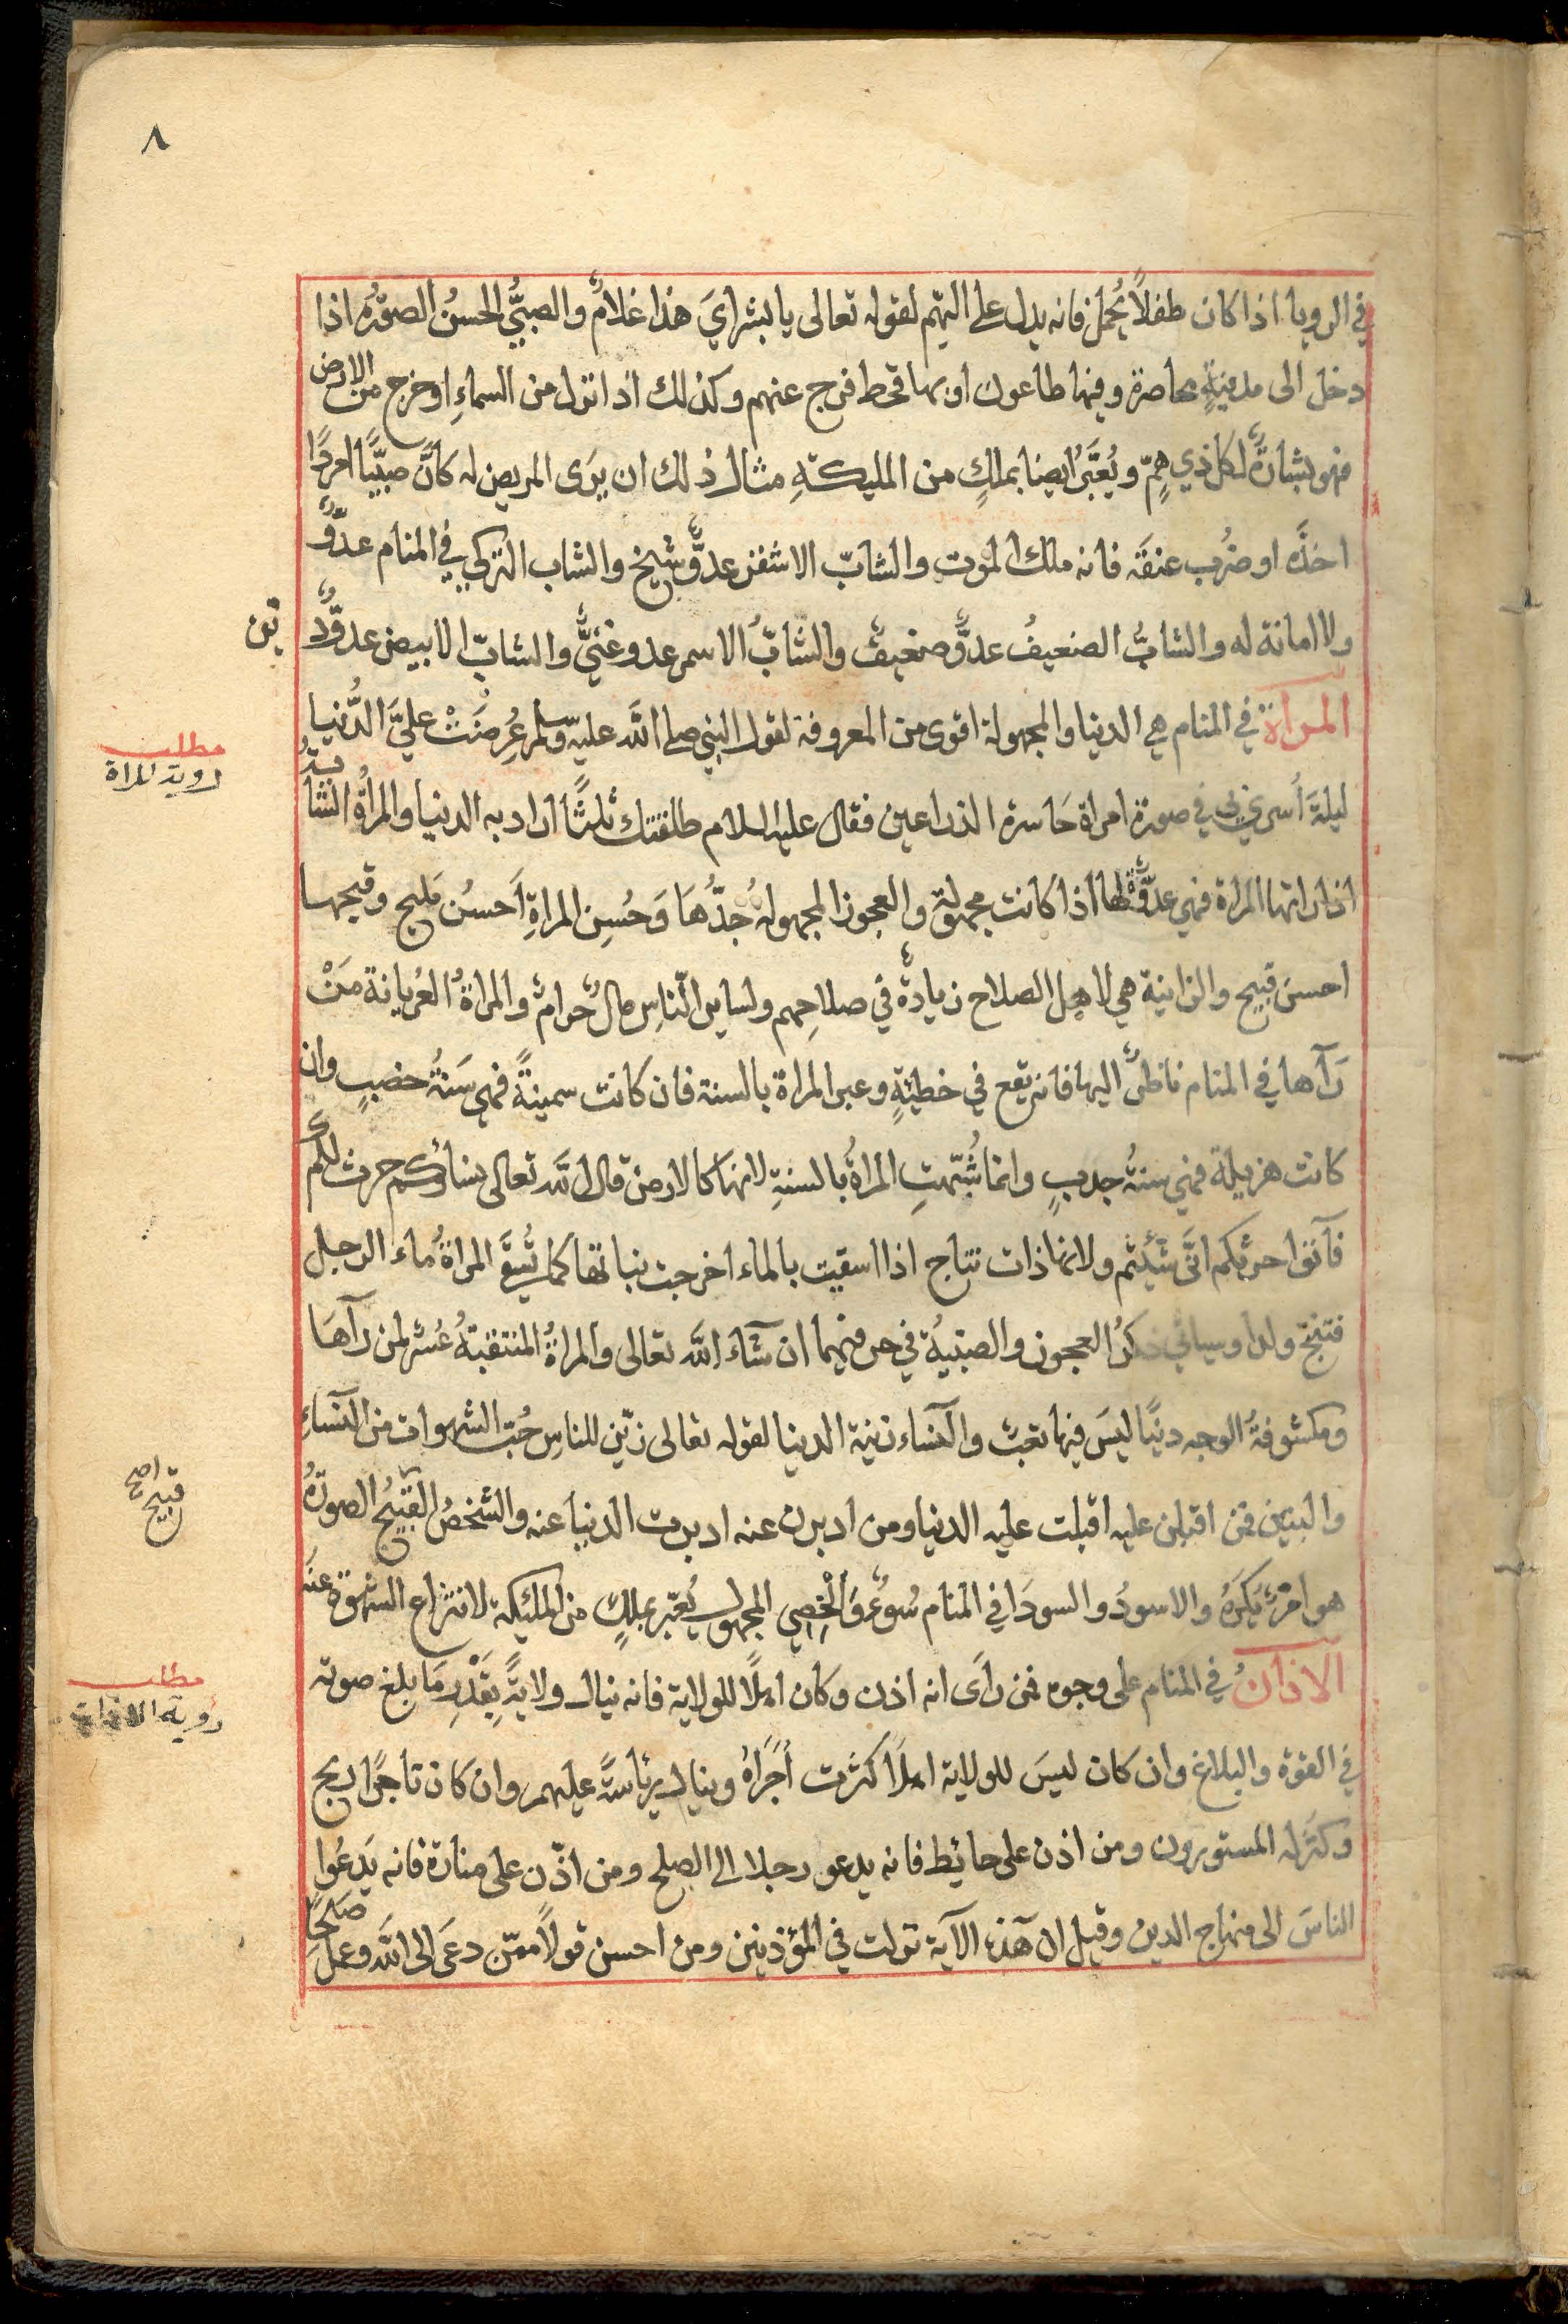 ٨
في الرويا اذا كان طفلاً يُحمل فانه يدل على اليتيم لقوله تعالى يا بشرايَ هذا غلامٌ والصبيُّ الحسنُ الصورُه اذا
دخل الى مدينةٍ محاصرة وفيها طاعون او بها قحط فرج عنهم وكذلك اذا نزل من السماءِ او خرج من الارض
فهو بشارةٌ لكل ذي همٍّ ويُعَبَّر ايضا بملكٍ من المليكةِ مثال ذلك ان يرَى المريض له كانَّ صبيًّا امردًا
اخذَه او ضُرب عنقَه فانه ملك الموتِ والشابّ الاشقر عدوٌّ شيخ والشاب التركي في المنام عدوٌّ
ولا امانة له والشابُّ الضعيفُ عدوٌّ ضعيفٌ والشابُّ الاسمر عدو غنيٌّ والشابّ الابيض عدوٌّ د
ين
المراة في المنام هي الدنيا والمجهولة اقوى من المعروفة لقول النبي صلى الله عليه وسلم عُرِضَتْ عليَّ الدُّنيا
مطلب
روية المراة
ليلةَ أسري بي في صورة امراة حَاسرة الذراعين فقال عليه السلام طلقتك ثلثًا اراد به الدنيا والمراةُ الشابةُ
اذا راتها المراة فهي عدوٌّة لها اذا كانت مجهولة والعجوز المجهولةُ جدُّهَا وَحُسِن المراةِ اَحسنُ مَليح وقبيحها
احسن قبيح والزانية هي لاهل الصلاح زيادةٌ في صلاحِهم ولساير النّاسِ مالٌ حرامٌ والمراةُ العُريانة مَنْ
رَآها في المنام ناظرٌ اليها فانه يقع في خطيئةٍ وعبر المراة بالسنة فان كانت سمينةً فهي سَنةُ خصبٍ وان
كانت هزيلة فهي سنةُ جدبٍ وانما شُبّهتِ المراةُ بالسنةِ لانها كالارض قال الله تعالى نساؤكم حرث لكم
فآتوا حرثكم انَّى شئتم ولانها ذات نتاج اذا اسقيت بالماء اخرجت نباتها كما تُسقَى المراةُ ماء الرجل
فتنتج ولدا وسياتي ذكرُ العجوز والصبيّة في حرفيهما ان شَاء الله تعالى والمراةُ المنتقبةُ عُسْر لمن رآهَا
ومكشوفةُ الوجه دنيًا ليسَ فيها تعبٌ والنساء زينة الدنيا لقوله تعالى زيّن للناسِ حُبّ الشهوات من النساءِ
والبنين فمن اقبلن عليه اقبلت عليه الدنيا ومن ادبرن عنه ادبرت الدنيا عنه والشخصُ القبيحُ الصورةُ
قبيح
اصح
هو امرٌ يُكرَهُ والاسودُ والسودَا في المنام سُوءٌ وَالخصِي المجهول يُعبّر بملكٍ من المليكة لانتزاع الشهوة عنه
الاذانُ في المنام على وجوه فمن رأَى انه اذن وكان اهلًا للولاية فانه ينال ولايةً بِقَدْرِ مَا بلغ صوته
مطلب
روية الاذان
في القوة والبلاغ وان كان ليسَ للولاية اهلًا كثرت أُجَرَاهُ وينال يرئاسةً عليهم وان كان تاجرًا ربح
وكثر له المستورون ومن اذن على حائيط فانه يدعو رجلا الى الصلح ومن اذّن على منارة فانه يَدعُوا
الناسَ الى منهاج الدين وقيل ان هَذه الآية نزلت في المؤذنين ومن احسن قولاً ممّن دعَى الى الله وعمل صلحًا